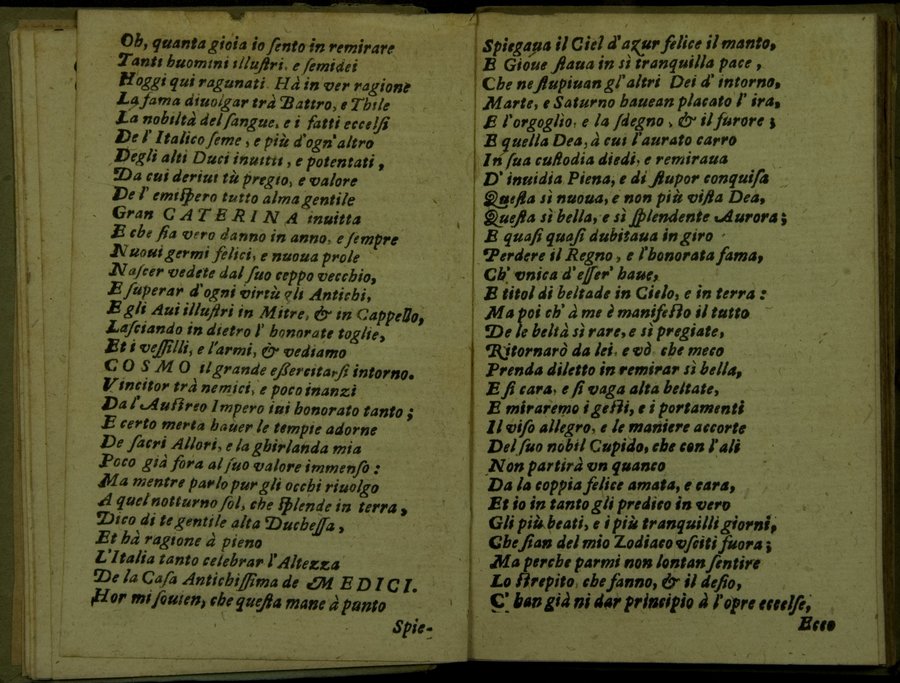 Oh, quanta gioia io ſento in remirare
Tanti huomini illuſtri, e ſemidei
Hoggi qui ragunati. Hà in ver ragione
La fama diuolgar trà Battro, e Thile
La nobiltà del ſangue, e i fatti eccelſi
De l' Italico ſeme, e più d'ogn'altro
Degli alti Duci inuitti, e potentati,
Da cui deriui tù pregio, e valore
De l' emiſpero tutto alma gentile
Gran CATERINA inuitta
E che ſia vero danno in anno, e ſempre
Nuoui germi felici, e nuoua prole
Naſcer vedete dal ſuo ceppo vecchio,
E ſuperar d'ogni virtù gli Antichi,
E gli Aui illuſtri in Mitre, & in Cappello,
Laſciando in dietro l' honorate toglie,
Et i veſſilli, e l'armi, & vediamo
COSMO il grande eßercitarſi intorno.
Vincitor trà nemici, e poco inanzi
Da l'Auſtreo Impero iui honorato tanto;
E certo merta hauer le tempie adorne
De ſacri Allori, e la ghirlanda mia
Poco già fora al ſuo valore immenſo:
Ma mentre parlo pur gli occhi riuolgo
A quel notturno ſol, che ſplende in terra,
Dico di te gentile alta Ducheſſa,
Et hà ragione à pieno
L'Italia tanto celebrar l'Altezza
De la Caſa Antichiſſima de MEDICI.
Hor mi ſouien, che queſta mane à punto
Spie-
Spiegaua il Ciel d'azur felice il manto,
E Gioue ſtaua in sì tranquilla pace,
Che ne ſtupiuan gl'altri Dei d' intorno,
Marte, e Saturno hauean placato l' ira,
E l'orgoglio, e la ſdegno, & il furore;
E quella Dea, à cui l'aurato carro
In ſua cuſtodia diedi, e remiraua
D' inuidia Piena, e di ſtupor conquiſa
Queſta si nuoua, e non più viſta Dea,
Queſta sì bella, e sì ſplendente Aurora;
E quaſi quaſi dubitaua in giro
Perdere il Regno, e l'honorata fama,
Ch' vnica d'eſſer' haue,
E titol di beltade in Cielo, e in terra:
Ma poi ch' à me è manifeſto il tutto
De le beltà sì rare, e si pregiate,
Ritornarò da lei, e vò che meco
Prenda diletto in remirar sì bella,
E ſi cara, e ſi vaga alta beltate,
E miraremo i geſti, e i portamenti
Il viſo allegro, e le maniere accorte
Del ſuo nobil Cupido, che con l'ali
Non partirà vn quanco
Da la coppia felice amata, e cara,
Et io in tanto gli predico in vero
Gli più beati, e i più tranquilli giorni,
Che ſian del mio Zodiaco vſciti fuora;
Ma perche parmi non lontan ſentire
Lo ſtrepito che fanno, & il deſio,
C' han già ni dar principio à l'opre eccelſe,
Ecco